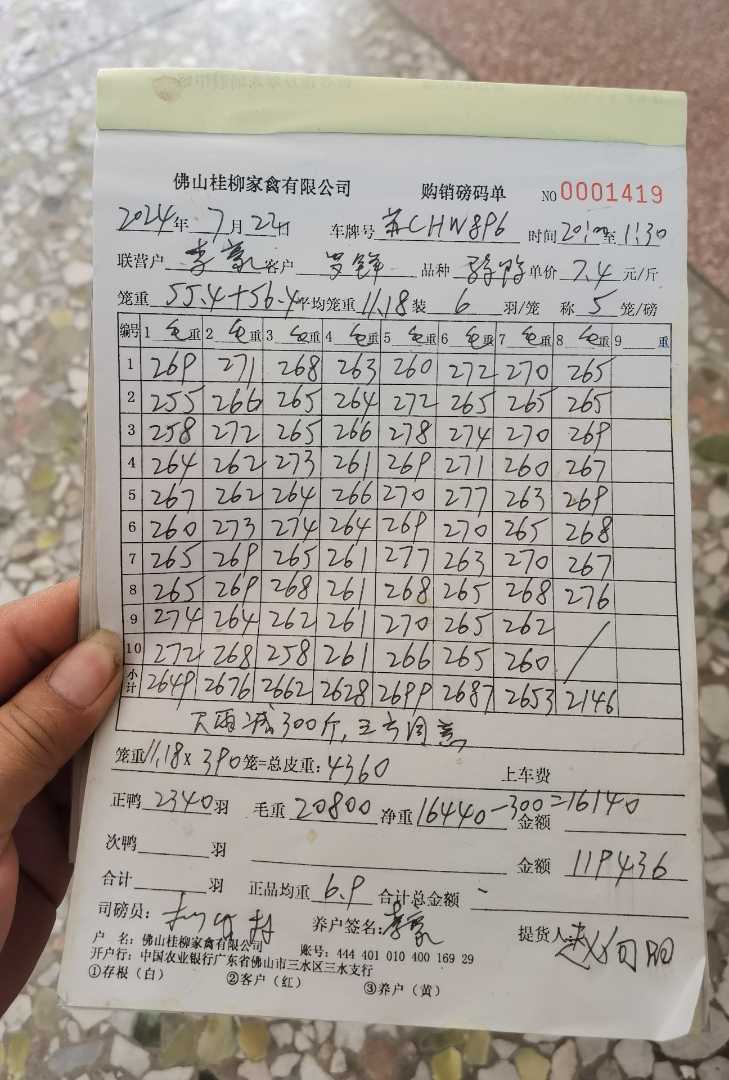 佛山桂柳家禽有限公司 购销磅码单 NO 0001419
2024年 7月 22日 车牌号 苏CHW896 时间 20:00至 1:30
联营户 李家 客户 品种 单价 7.4 元/斤
笼重 55.4+56.4 平均笼重 11.18 装 6 羽/笼 称 5 笼/磅
编号 1 毛重 2 毛重 3 毛重 4 毛重 5 毛重 6 毛重 7 毛重 8 毛重 9 重
1 269 271 268 263 260 272 270 265
2 255 266 265 264 272 265 265 265
3 258 272 265 266 278 274 270 269
4 264 262 273 261 269 271 260 267
5 267 262 264 266 270 277 263 269
6 260 273 274 264 269 270 265 268
7 265 269 265 261 277 263 270 267
8 265 269 268 261 268 265 268 276
9 274 264 262 261 270 265 262 /
10 272 268 258 261 266 265 260
小计 2649 2676 2662 2628 2699 2687 2653 2146
天雨减300斤,三方同意
笼重11.18 x 390笼=总皮重: 4360 上车费
正鸭 2340 羽 毛重 20800 净重 16440-300=16140 金额
次鸭 羽 金额 119436
合计 羽 正品均重 6.9 合计总金额 -
司磅员: 养户签名: 李家 提货人: 赵向阳
户 名: 佛山桂柳家禽有限公司 账号: 444 401 010 400 169 29
开户行: 中国农业银行广东省佛山市三水区三水支行
①存根(白) ②客户(红) ③养户(黄)